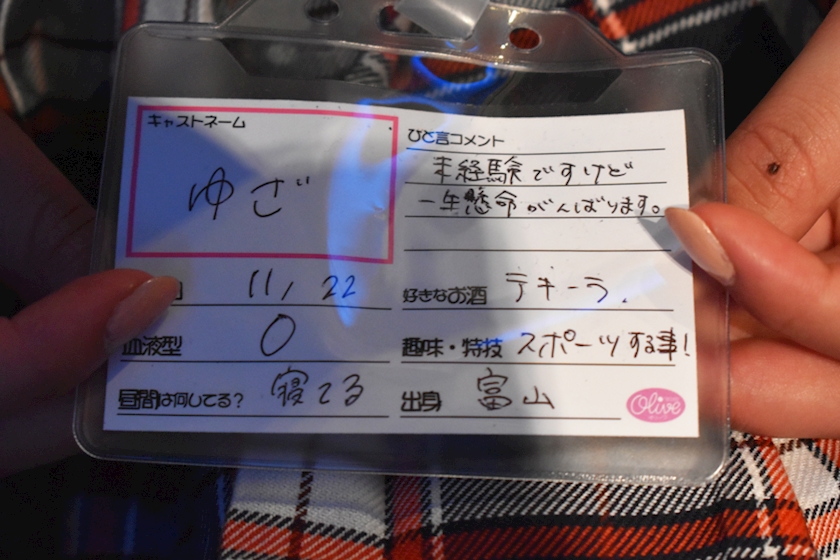 キャストネーム
ゆざ
11/22
血液型 O
昼間は何してる? 寝てる
ひと言コメント
未経験ですけど
一生懸命がんばります。
好きなお酒 テキーラ.
趣味・特技 スポーツする事!
出身 富山
Olive